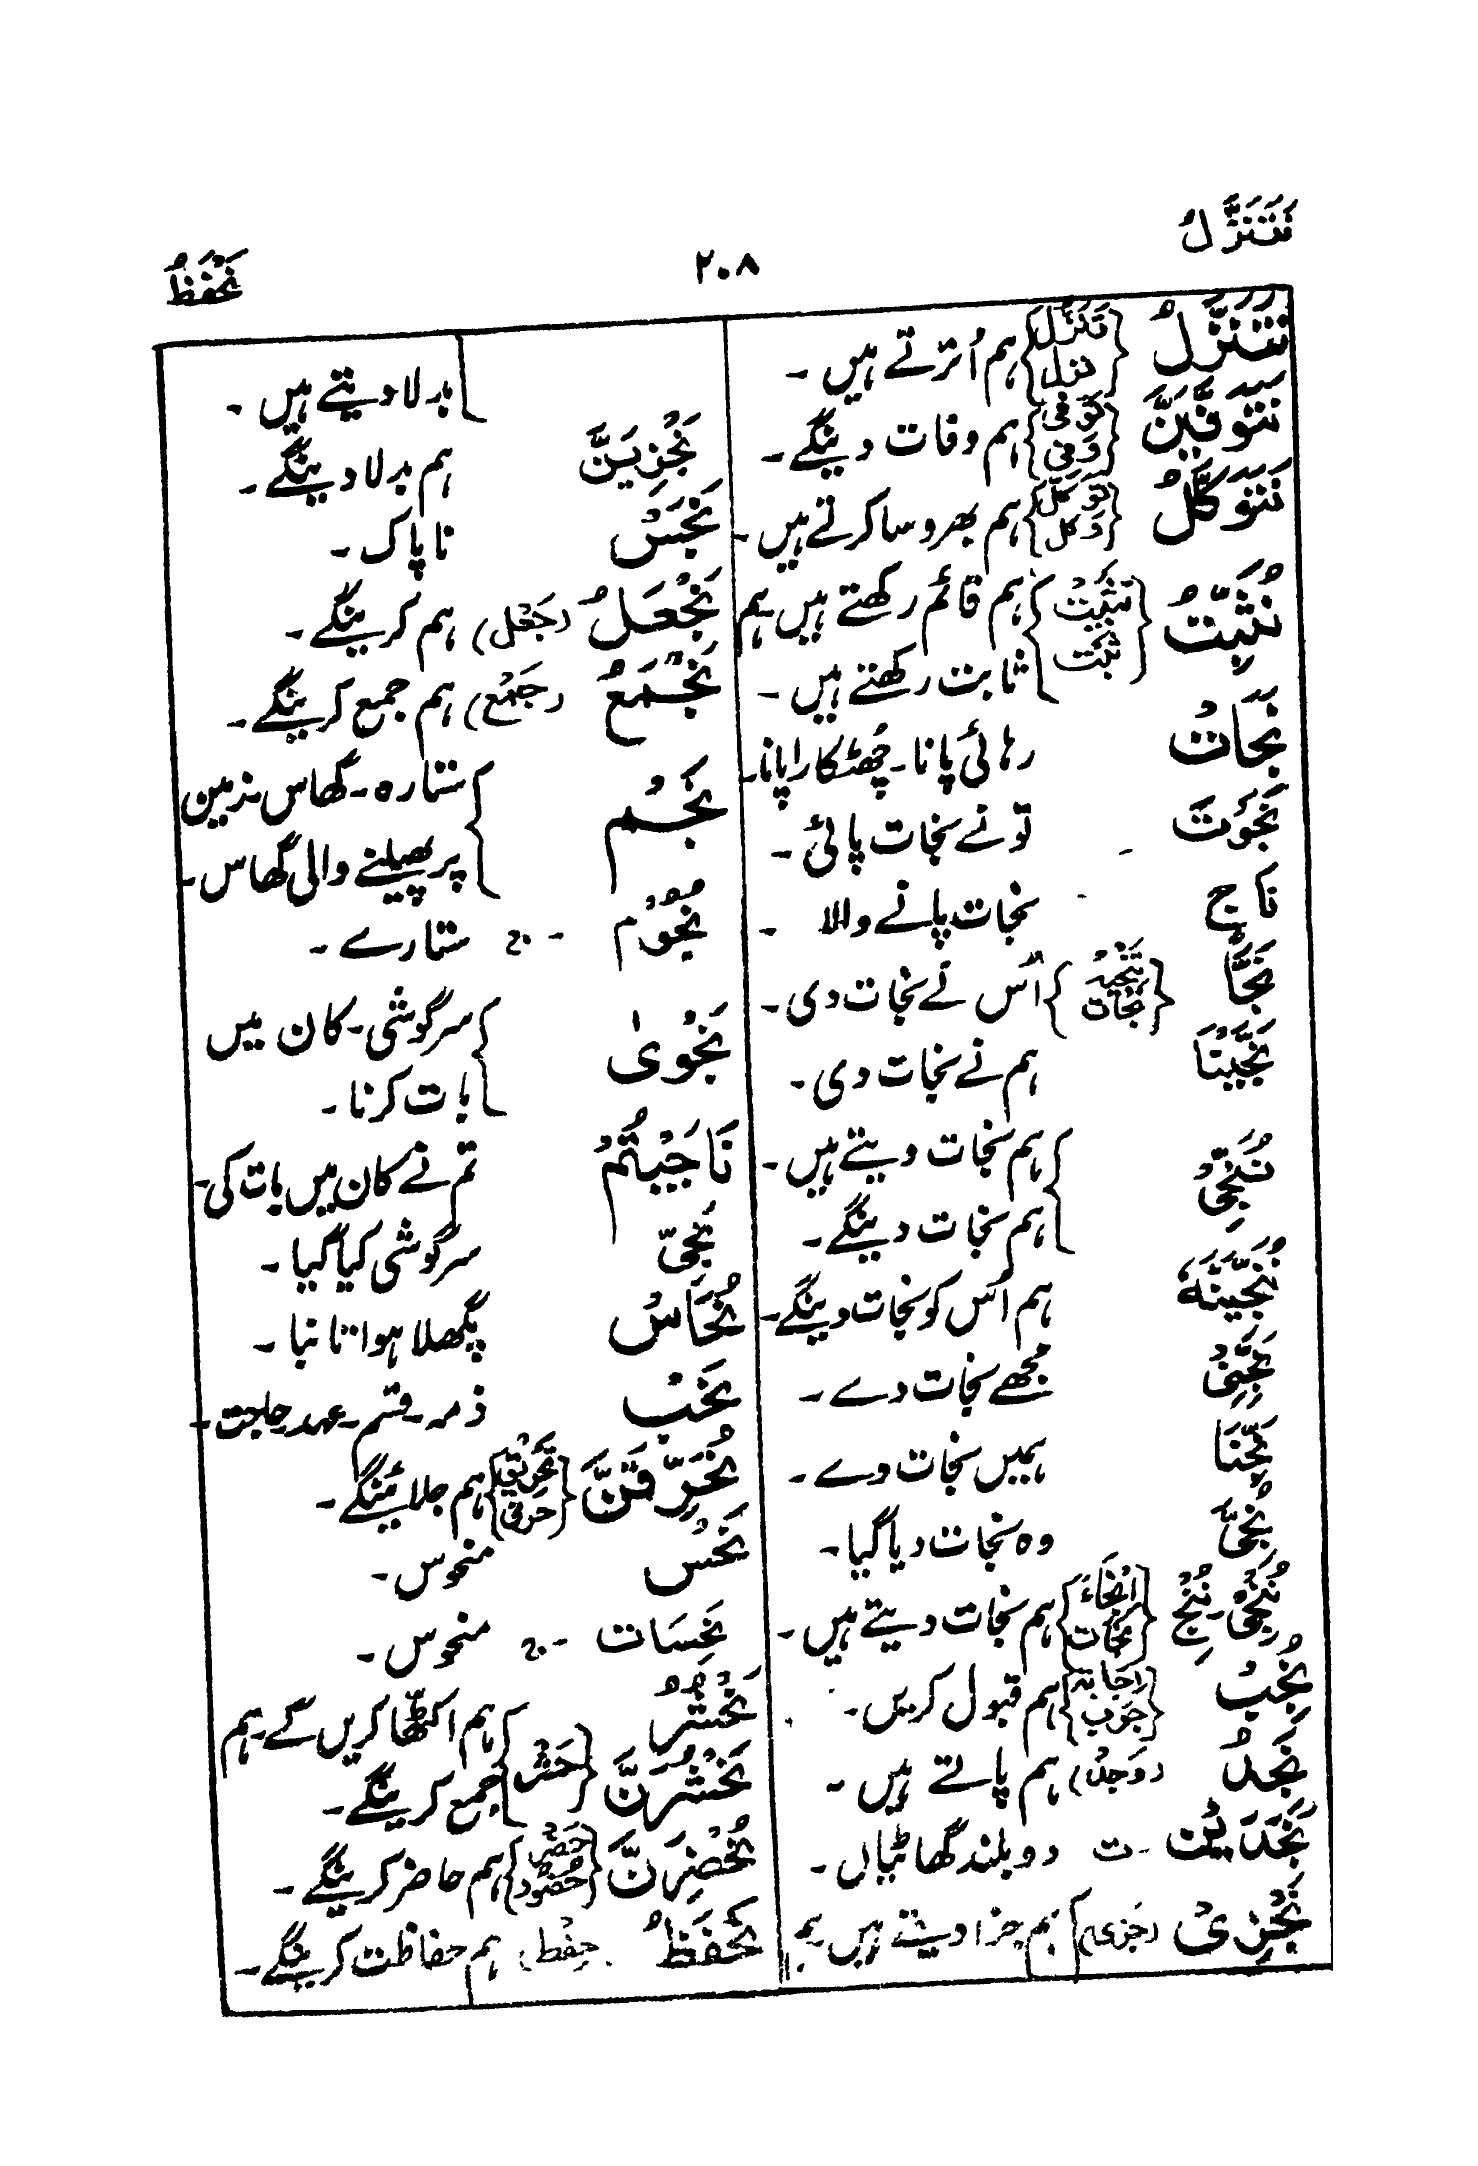 نَتَنَزَّلُ
۲۰۸
نَحْفَظُ
نَتَنَزَّلُ {تَنَزُّل نزل} ہم اُترتے ہیں۔
نَتَوَفَّيَنَّ {تَوَفّی وَفی} ہم وفات دینگے۔
نَتَوَكَّلُ {تَوَكُّل وَكل} ہم بھروسا کرتے ہیں۔
نُثَبِّتُ {تَثْبِيْت ثَبْت} ہم قائم رکھتے ہیں ہم
ثابت رکھتے ہیں۔
نَجَاتْ رہائی پانا۔ چُھٹکارا پانا۔
نَجَوْتَ تو نے نجات پائی۔
نَاجٍ نجات پانے والا۔
نَجَّا {تَنْجِيَه نَجَات} اُس نے نجات دی۔
نَجَّيْنَا ہم نے نجات دی۔
نُنَجِّیْ ہم نجات دیتے ہیں۔
ہم نجات دینگے۔
نُنَجِّيَنَّهٗ ہم اُس کو نجات دینگے۔
نَجِّنِیْ مجھے نجات دے۔
نَجِّنَا ہمیں نجات دے۔
نُجِّیَ وہ نجات دیا گیا۔
نُنْجِیْ۔ نُنْجِ {اِنْجَاءً نَجَات} ہم نجات دیتے ہیں۔
نُجِبْ {اِجَابَة جَوْب} ہم قبول کریں۔
نَجِدُ (وَجْدٌ) ہم پاتے ہیں۔
نَجْدَيْنِ ۔ ت دو بلند گھاٹیاں۔
نَجْزِیْ (جَزَى) ہم جزا دیتے ہیں ہم
بدلا دیتے ہیں۔
نَجْزِيَنَّ ہم بدلا دینگے۔
نَجَسٌ نا پاک۔
نَجْعَلُ (جَعْل) ہم کرینگے۔
نَجْمَعُ (جَمْع) ہم جمع کرینگے۔
نَجْم ستارہ۔ گھاس۔ زمین
پر پھیلنے والی گھاس۔
نُجُوْم ۔ ج ستارے۔
نَجْوٰى سرگوشی۔ کان میں
بات کرنا۔
نَاجَيْتُمْ تم نے کان میں بات کی۔
نَجِیّ سرگوشی کیا گیا۔
نُحَاسٌ پگھلا ہوا تانبا۔
نَحْبٌ ذمہ۔ قسم۔ عہد۔ حاجت۔
نُحَرِّقَنَّ {تَحْرِيْق حرق} ہم جلائینگے۔
نَحْسٌ منحوس۔
نَحِسَات ۔ ج منحوس۔
نَحْشُرُ ہم اکٹھا کریں گے۔ ہم
نَحْشُرَنَّ {حَشْر} جمع کرینگے۔
نُحْضِرَنَّ {حضر حضور} ہم حاضر کرینگے۔
نَحْفَظُ (حِفْظ) ہم حفاظت کرینگے۔